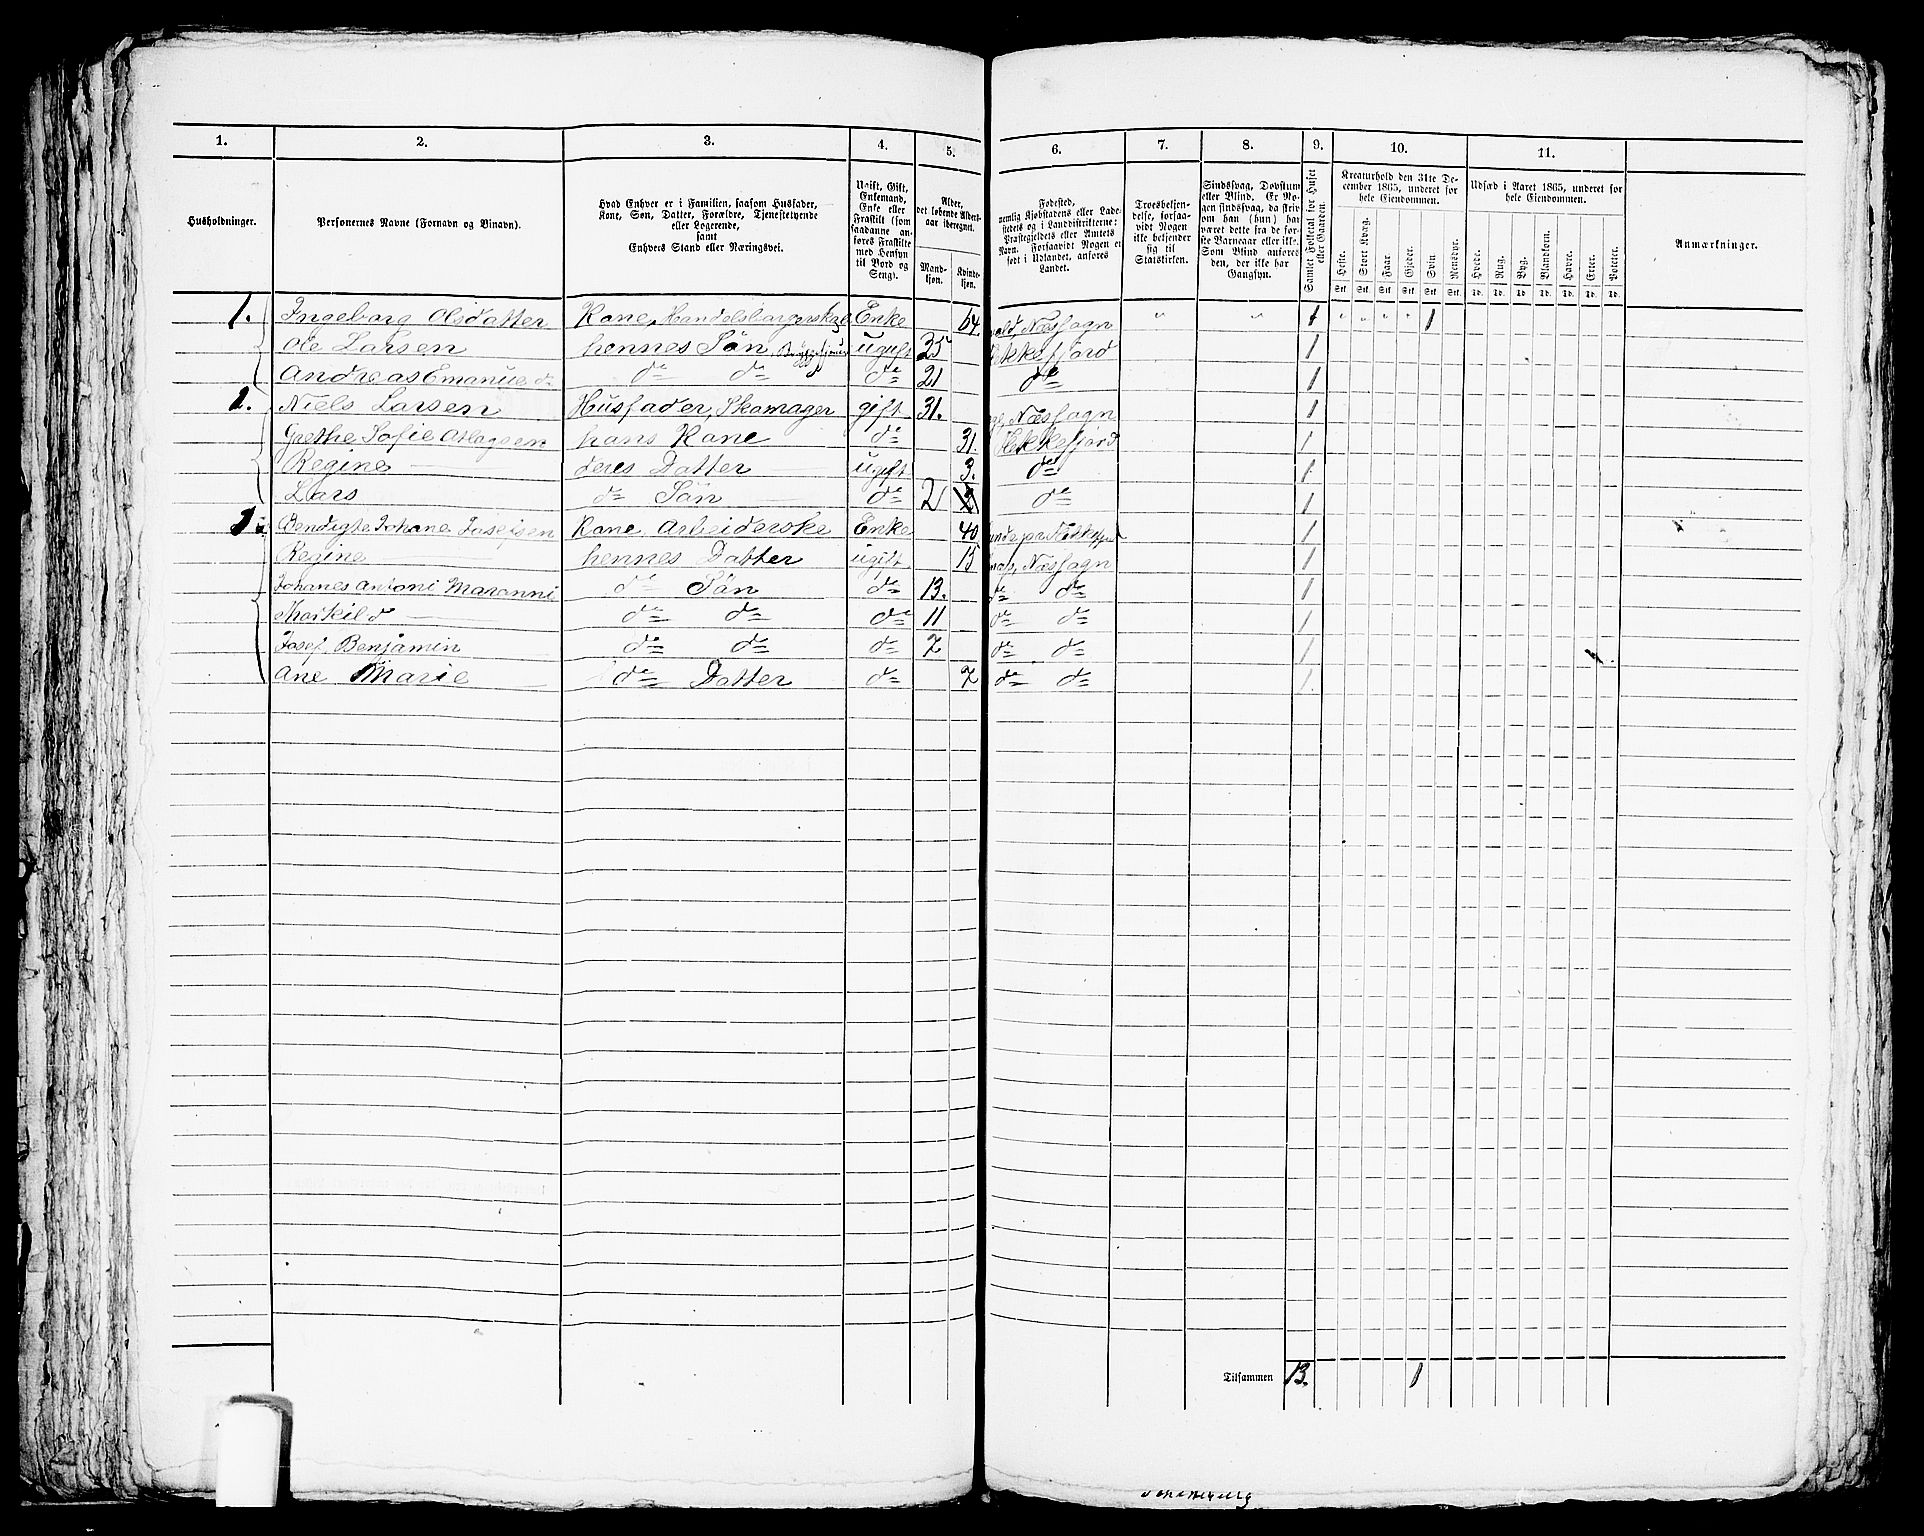 1. 2. 3. 4. 5. 6. 7. 8. 9. 10. 11.
Husholdninger.
Personernes Navne (Fornavn og Tilnavn).
Hvad Enhver er i Familien, saasom Husfader,
Kone, Søn, Datter, Forældre, Tjenestetyende
eller Logerende,
samt
Enhvers Stand eller Næringsvei.
Ugift, Gift,
Enkemand,
Enke eller
Fraskilt (som
saadanne an-
føres Fraskilte
med Hensyn
til Bord og
Seng).
Alder,
det løbende Alders-
aar iberegnet.
Mand-
kjøn.
Kvinde-
kjøn.
Fødested,
nemlig Kjøbstadens eller Lade-
stedets og i Landdistrikterne:
Præstegjeldets eller Amtets
Navn. Forsaavidt Nogen er
født i Udlandet, anføres
Landet.
Troesbekjen-
delse, forsaa-
vidt Nogen
ikke bekjender
sig til
Statskirken.
Sindssvag, Døvstum
eller Blind. Er No-
gen sindssvag, da skriv
om han (hun) har
været dette fra de før-
ste Barneaar eller ikke.
Som Blind anføres
den, der ikke har
Gangsyn.
Samlet Folketal for Huset
eller Gaarden.
Kreaturhold den 31te De-
cember 1865, underet for
hele Eiendommen.
Heste. Stort Kvæg. Faar. Gjeder. Svin. Rensdyr.
Stk. Stk. Stk. Stk. Stk. Stk.
Udsæd i Aaret 1865, underet for
hele Eiendommen.
Hvede. Rug. Byg. Blandkorn. Havre. Erter. Poteter.
Td. Td. Td. Td. Td. Td. Td.
Anmærkninger.
1. Ingeborg Olsdatter Kone, Enke 64. Næsfogn " " 1 " " " " 1
Ole Larsen hennes Sön, ugift 35 Flekkefjord 1
Andreas Emanuel do do do do 21 do 1
1. Niels Larsen Husfader, Skomager gift 31. Næsfogn 1
Grethe Sofie Aslagsen hans Kone do 31. Flekkefjord 1
Regine deres Datter ugift 3. do 1
Lars do Sön do 2 do 1
1. Bendigte Johane Josefsen Kone Arbeiderske Enke 40 1
Regine hennes Datter ugift 15 Næsfogn 1
Johanes Antoni do Sön do 13. do do 1
do do do 11 do do 1
Josef Benjamin do do do 7 do do 1
Ane Marie do Datter do 7 do do 1.
Tilsammen 13. 1